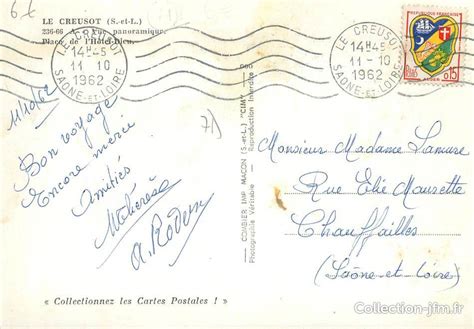 6 €
LE CREUSOT (S.-et-L.)
236-66 A - Vue panoramique.
Place de l'Hôtel-Dieu.
LE CREUSOT
14H45
11-10
1962
SAONE-ET-LOIRE
LE CREUSOT
14H45
11-10
1962
SAONE-ET-LOIRE
REPUBLIQUE FRANÇAISE
POSTES
0,15
ALGER
11/10/62
Bon voyage
Encore merci
Amitiés
71
COMBIER IMP. MACON (S.-ET-L.) "CIM"
Photographie Véritable - Reproduction Interdite
Monsieur Madame Lamure
Rue Elie Maurette
Chauffailles
(Saône et Loire)
« Collectionnez les Cartes Postales ! »
Collection-jfm.fr